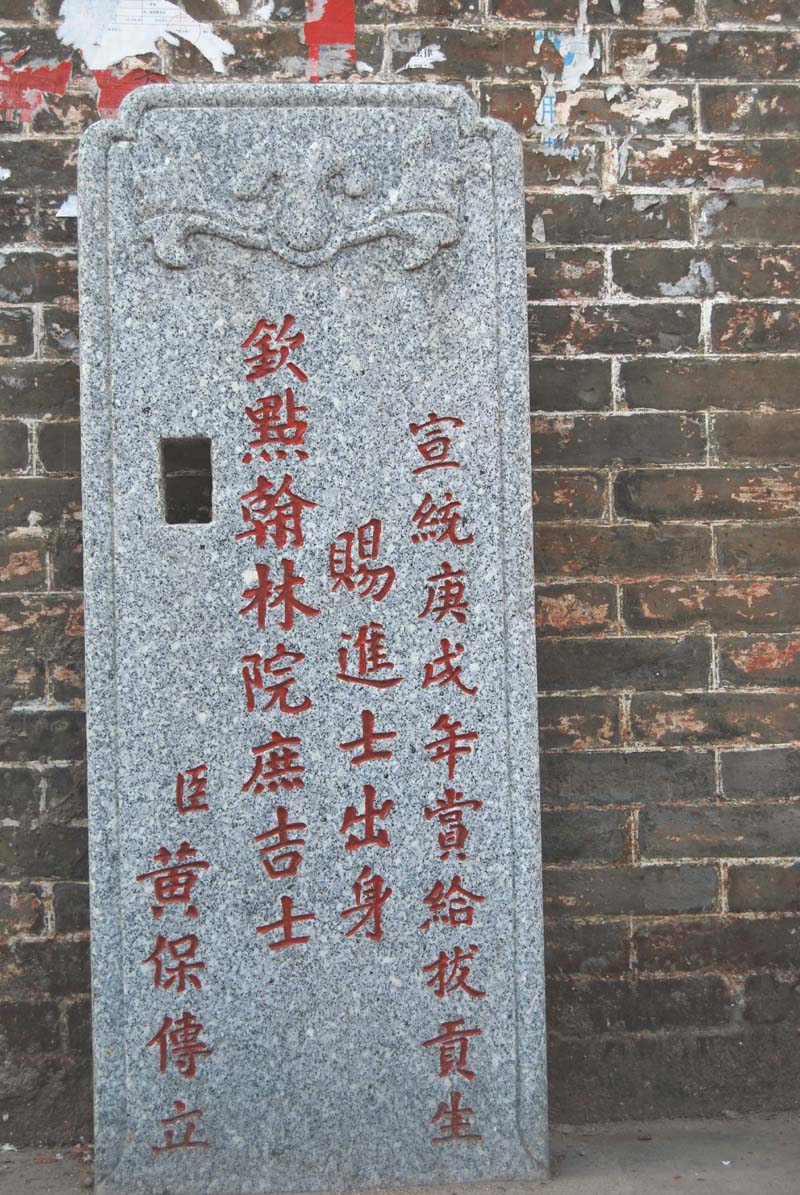 宣統庚戌年賞給拔貢生
賜進士出身
欽點翰林院庶吉士
臣黃保傳立